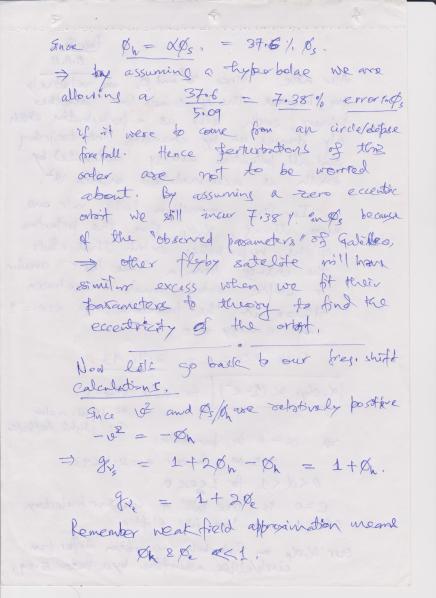 Since φₕ = αφₛ. = 37.6% φₛ.
⇒ by assuming a hyperbolae we are
allowing a 37.6/5.09 = 7.38% error in φₛ
if it were to come from an circle/
free fall. Hence perturbations of this
order are not to be worried
about. By assuming a zero eccentric
orbit we still incur 7.38% in φₛ because
of the "observed parameters" of Galileo,
⇒ other flyby satelite will have
similar excess when we fit their
parameters to theory to find the
eccentricity of the orbit.
Now let's go back to our freq. shift
calculations.
Since v² and φₛ/φₕ are relatively positive
-v² = -φₕ
⇒ gᵥₛ = 1+2φₕ - φₕ = 1+φₕ.
= 1+2φₑ
Remember weak field approximation means
φₕ & φₑ << 1.